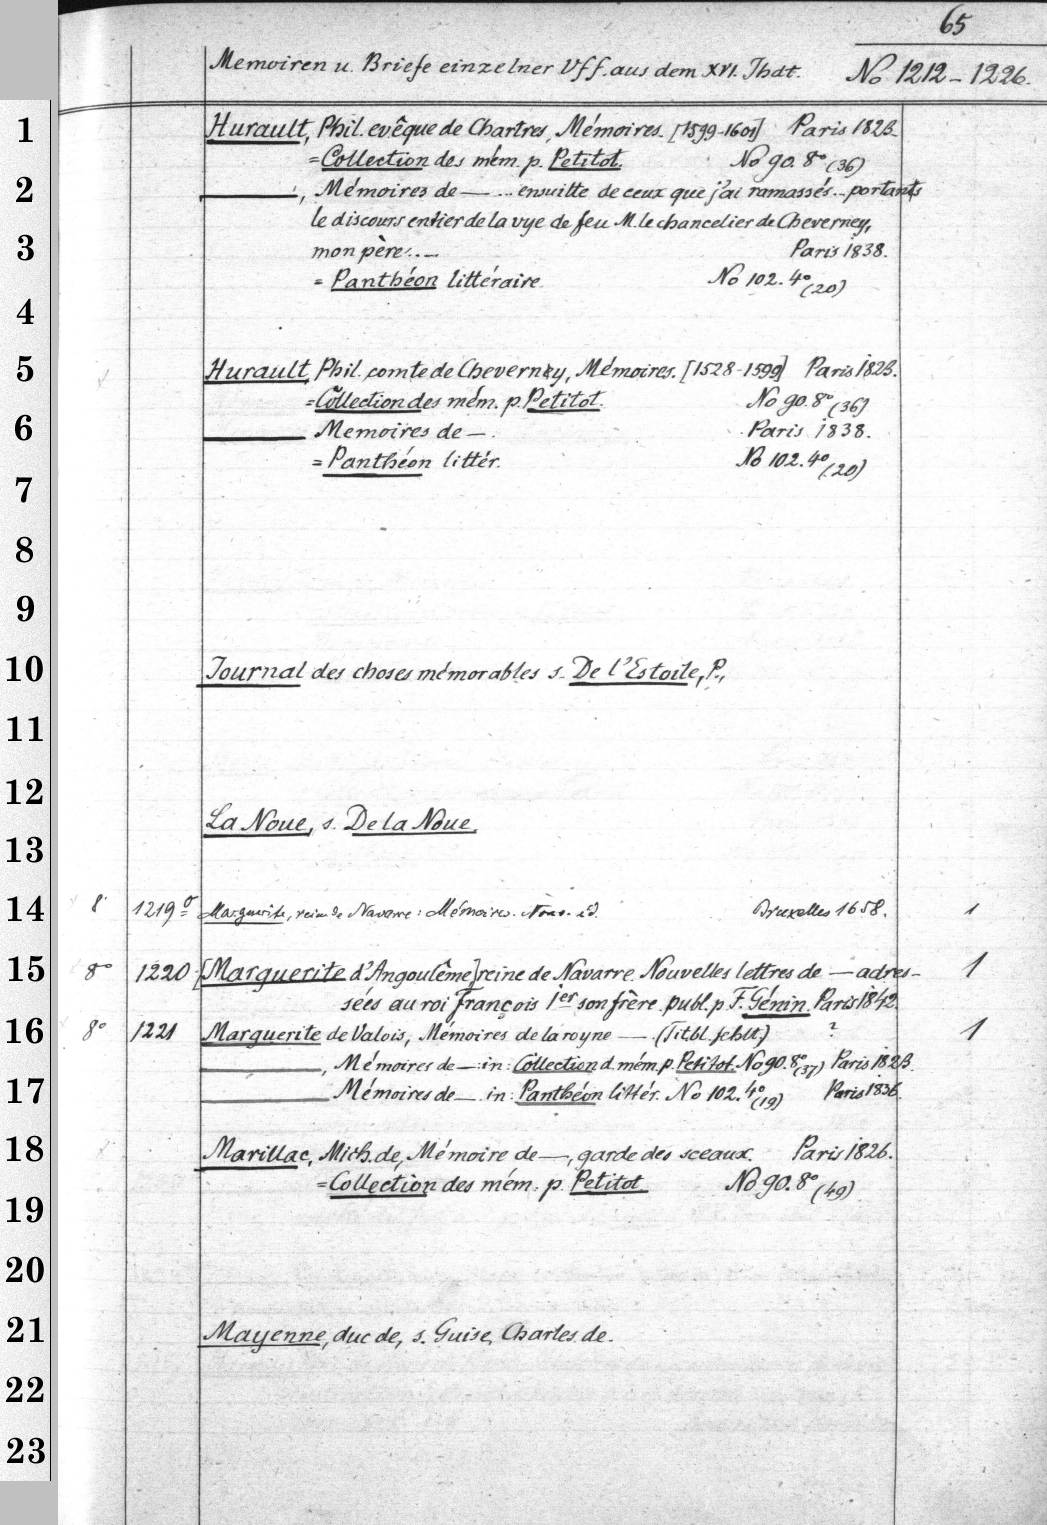 65
Memoiren u. Briefe einzelner Vff. aus dem XVI. Jhdt. No 1212-1226.
1 Hurault, Phil. evêque de Chartres, Mémoires. [1599-1601] Paris 1823.
=Collection des mém. p. Petitot. No 90. 8° (36)
2 ——, Mémoires de — ... ensuitte de ceux que j'ai ramassés... portants
le discours entier de la vye de feu M. le chancelier de Cheverney,
3 mon père... — Paris 1838.
= Panthéon littéraire. No 102. 4° (20)
4
5 Hurault, Phil. comte de Cheverny, Mémoires. [1528-1599] Paris 1823.
=Collection des mém. p. Petitot. No 90. 8° (36)
6 —— Memoires de —. Paris 1838.
= Panthéon littér. No 102. 4° (20)
7
8
9
10 Journal des choses mémorables s. De l'Estoile, P.,
11
12
La Noue, s. De la Noue.
13
14 8° 1219a Marguerite, reine de Navarre: Mémoires. Nouv. éd. Bruxelles 1658. 1
15 8° 1220 [Marguerite d'Angoulême] reine de Navarre, Nouvelles lettres de — adres- 1
sées au roi François Ier son frère publ. p. F. Génin. Paris 1842.
16 8° 1221 Marguerite de Valois, Mémoires de la royne — (Titbl. fehlt.) ? 1
——, Mémoires de — in: Collection d. mém. p. Petitot. No 90. 8° (37) Paris 1823.
17 —— Mémoires de — in: Panthéon littér. No 102. 4° (19) Paris 1836.
18 Marillac, Mich. de, Mémoire de —, garde des sceaux. Paris 1826.
=Collection des mém. p. Petitot No 90. 8° (49)
19
20
21 Mayenne, duc de, s. Guise, Charles de.
22
23